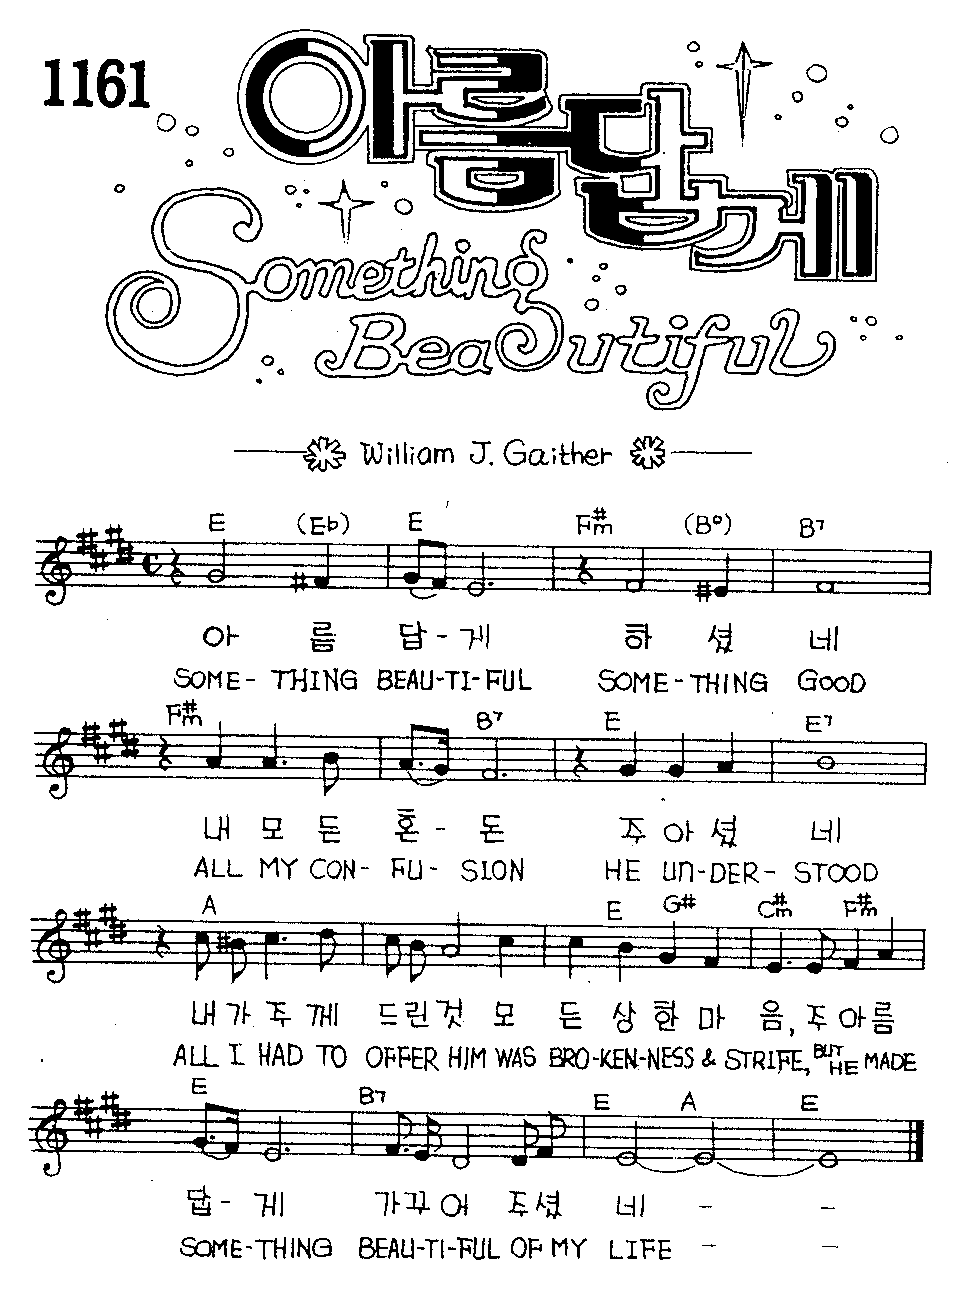 1161
아름답게
Something
Beautiful
William J. Gaither
E (E♭) E F#m (B°) B7
아 름 답 - 게 하 셨 네
SOME - THING BEAU-TI-FUL SOME-THING GOOD
F#m B7 E E7
내 모 든 혼 - 돈 주 아 셨 네
ALL MY CON - FU - SION HE UN-DER - STOOD
A E G# C#m F#m
내 가 주 께 드 린 것 모 든 상 한 마 음, 주 아 름
ALL I HAD TO OFFER HIM WAS BRO-KEN-NESS & STRIFE, BUT HE MADE
E B7 E A E
답 - 게 가 꾸 어 주 셨 네 - -
SOME-THING BEAU-TI-FUL OF MY LIFE - -